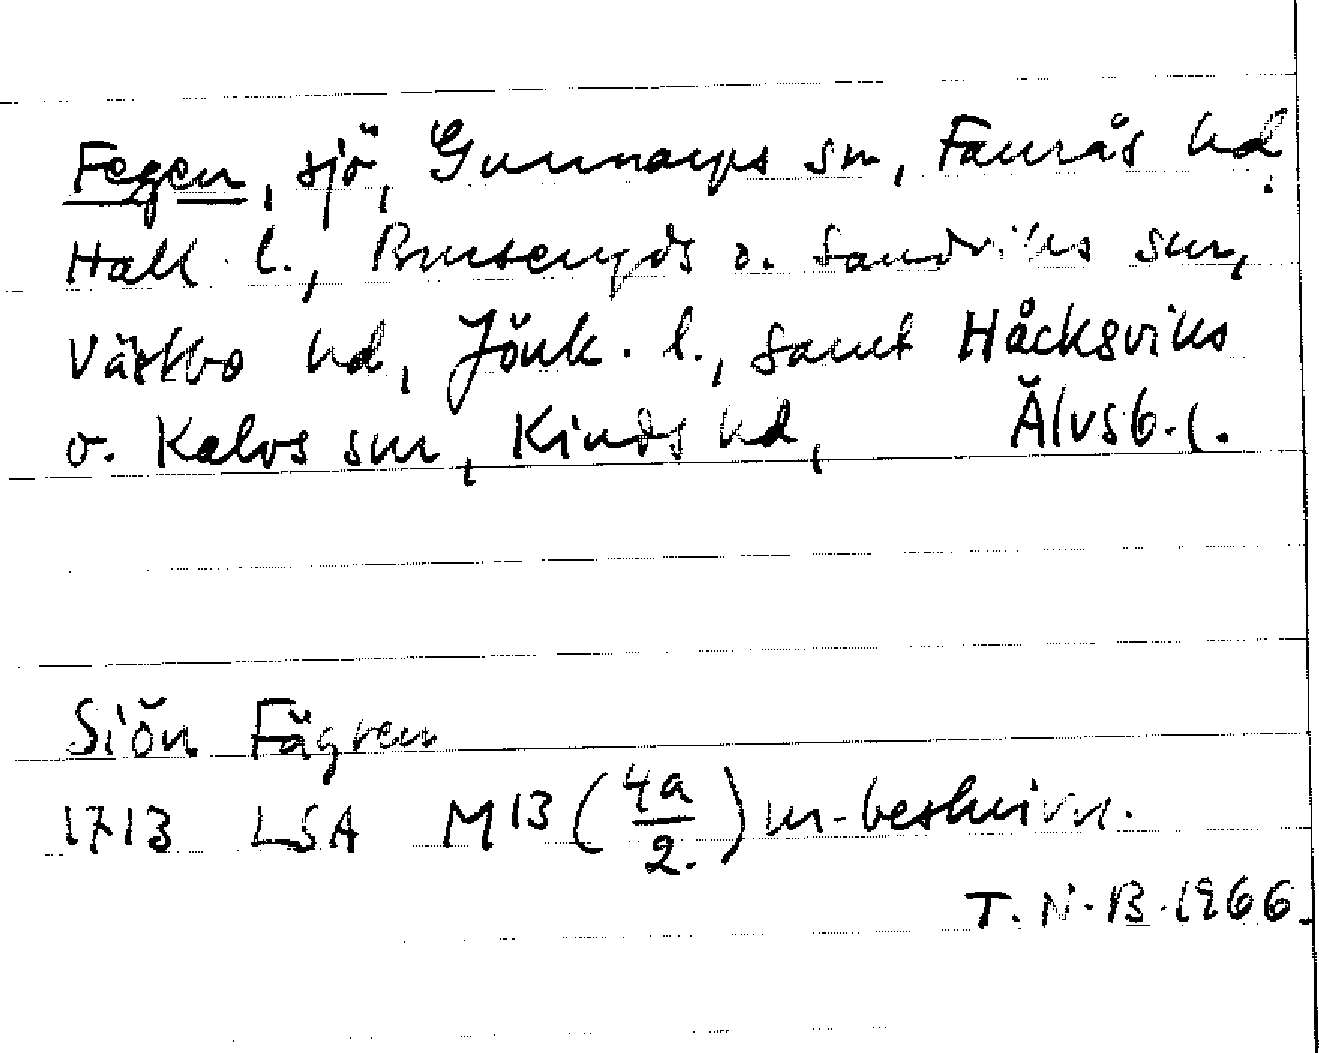 Fegen, sjö, Gunnarps sn, Faurås hd
Hall. l., Burseryds o. Sandviks snr,
Västbo hd, Jönk. l., samt Håcksviks
o. Kalvs snr, Kinds hd, Älvsb. l.
Siön Fägren
1713 LSA M13 (4a/2.) m-beskrivn.
T. N. B. 1966.